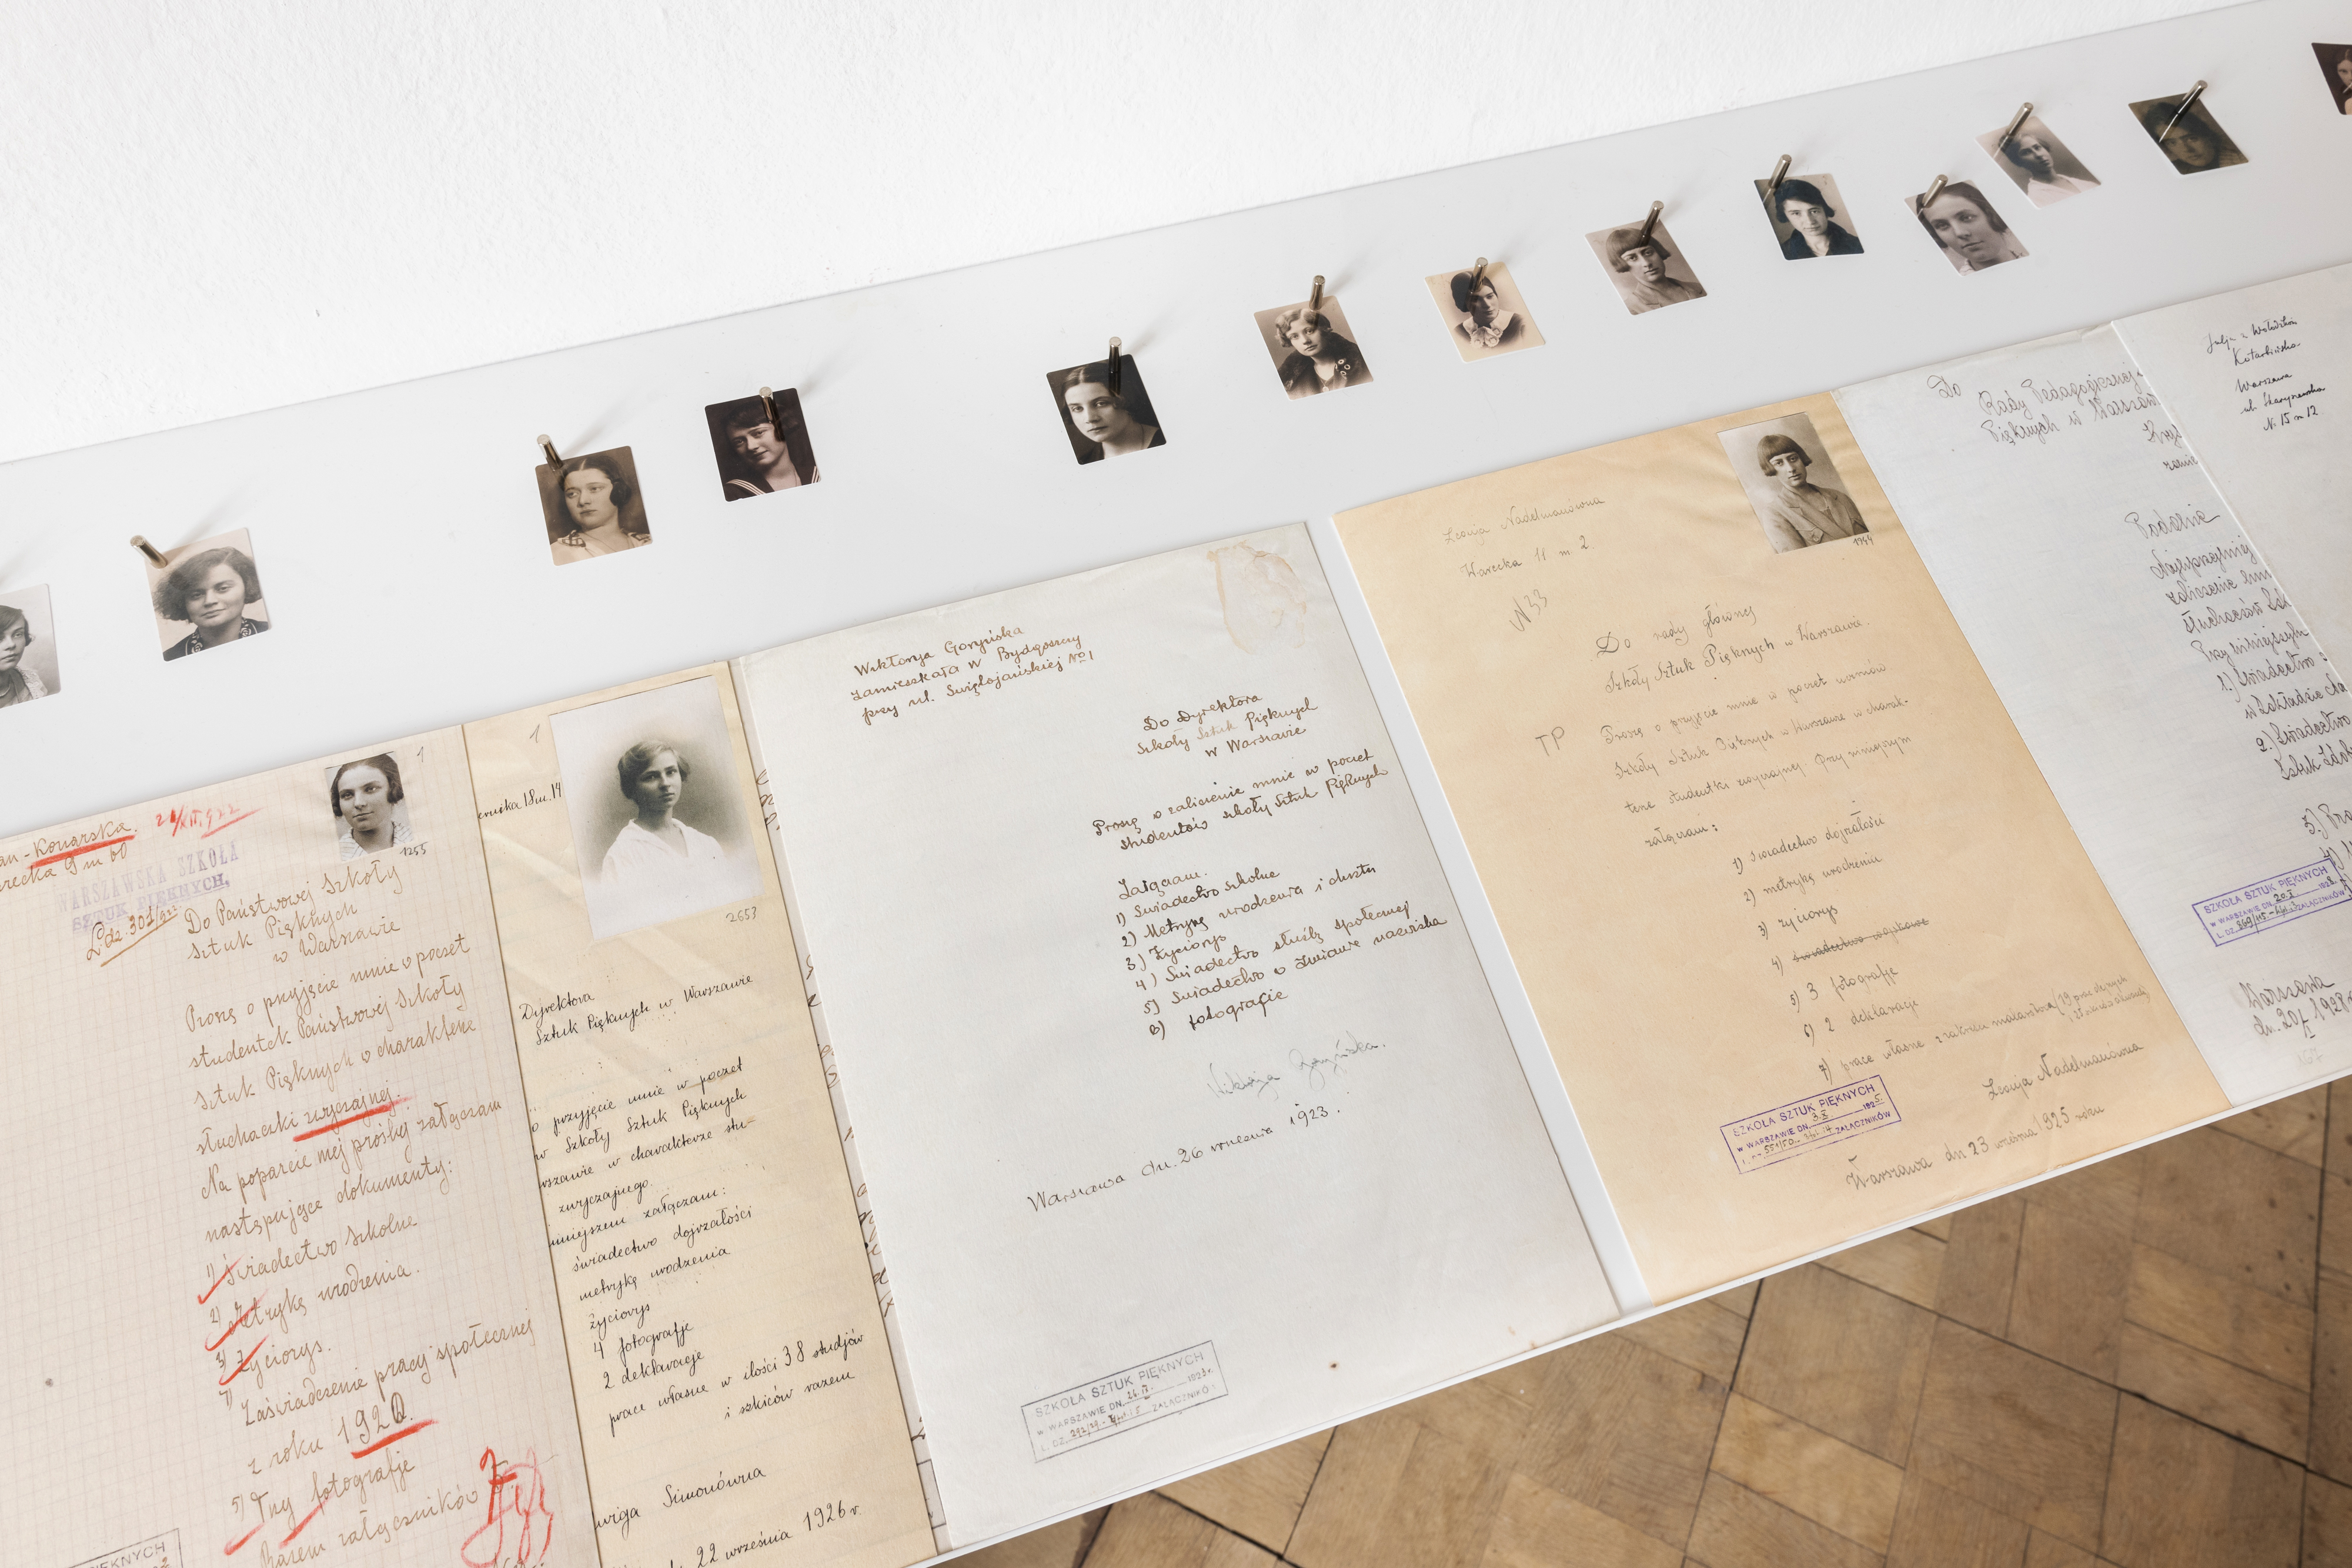 an - Konarska. 21/XII.922
recka 9 m 60
WARSZAWSKA SZKOŁA
SZTUK PIĘKNYCH,
L.dz. 301/922
1
1255
Do Państwowej Szkoły
Sztuk Pięknych
w Warszawie
Proszę o przyjęcie mnie w poczet
studentek Państwowej Szkoły
Sztuk Pięknych w charakterze
słuchaczki zwyczajnej.
Na poparcie mej prośby załączam
następujące dokumenty:
1) Świadectwo szkolne
2) Metrykę urodzenia.
3) Życiorys.
Zaświadczenie pracy społecznej
z roku 1920.
5) Trzy fotografje
Razem załączników 5.
PIĘKNYCH
1
ernika 18 m. 14
2653
Dyrektora
Sztuk Pięknych w Warszawie
o przyjęcie mnie w poczet
w Szkoły Sztuk Pięknych
wszawie w charakterze stu-
zwyczajnego.
niniejszem załączam:
świadectwo dojrzałości
metrykę urodzenia
życiorys
4 fotografje
2 deklaracje
prace własne w ilości 38 studjów
i szkiców razem
wiga Simonówna
22 września 1926 r.
Wiktorja Goryńska
zamieszkała w Bydgoszczy
przy ul. Świętojańskiej No 1
Do Dyrektora
Szkoły Sztuk Pięknych
w Warszawie
Proszę o zaliczenie mnie w poczet
studentów szkoły Sztuk Pięknych
Załączam.
1) Swiadectwo szkolne
2) Metrykę urodzenia i chrztu
3) Życiorys
4) Swiadectwo służby społecznej
5) Swiadectwo o zmianie nazwiska
6) fotografie
Wiktorja Goryńska.
Warszawa dn. 26 września 1923.
SZKOŁA SZTUK PIĘKNYCH
W WARSZAWIE DN. 26.IX. 1923 r.
L. DZ. ZAŁĄCZNIKÓW
Leonja Nadelmanówna
Warecka 11 m 2.
N 33
1744
Do rady głównej
Szkoły Sztuk Pięknych w Warszawie.
TP
Proszę o przyjęcie mnie w poczet uczniów
Szkoły Sztuk Pięknych w Warszawie w charak-
terze studentki zwyczajnej. Przy niniejszym
załączam:
1) świadectwo dojrzałości
2) metrykę urodzenia
3) życiorys
4) świadectwo wojskowe
5) 3 fotografje
6) 2 deklaracje
7) prace własne z zakresu malarstwa
Leonja Nadelmanówna
SZKOŁA SZTUK PIĘKNYCH
W WARSZAWIE DN. 3.X 1925.
ZAŁĄCZNIKÓW
Warszawa dn 23 września 1925 roku
Do Rady Pedagogicznej
Pięknych w Warszaw
Podanie
Najuprzejmiej
zaliczenie
słuchaczów Szk
Przy niniejszym
1.) Świadectwo
w Zakładzie
2.) Świadectwo
Sztuk Zdob
3.)
SZKOŁA SZTUK PIĘKNYCH
W WARSZAWIE DN. 20.X 1928
L. DZ. ZAŁĄCZNIKÓW
Warszawa
dn. 20/X 1928
Kotarbińska
Warszawa
ul. Skaryszewska
N. 15 m 12